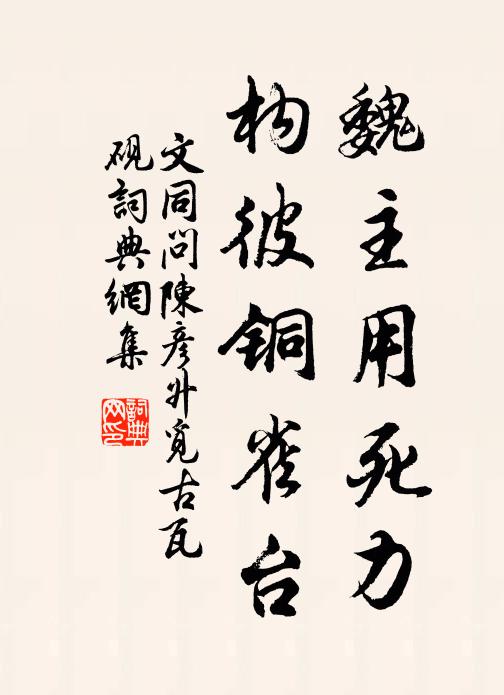 魏主用死力
构彼铜雀台
文同问陈彦升觅古瓦
砚词典网集
词典网印